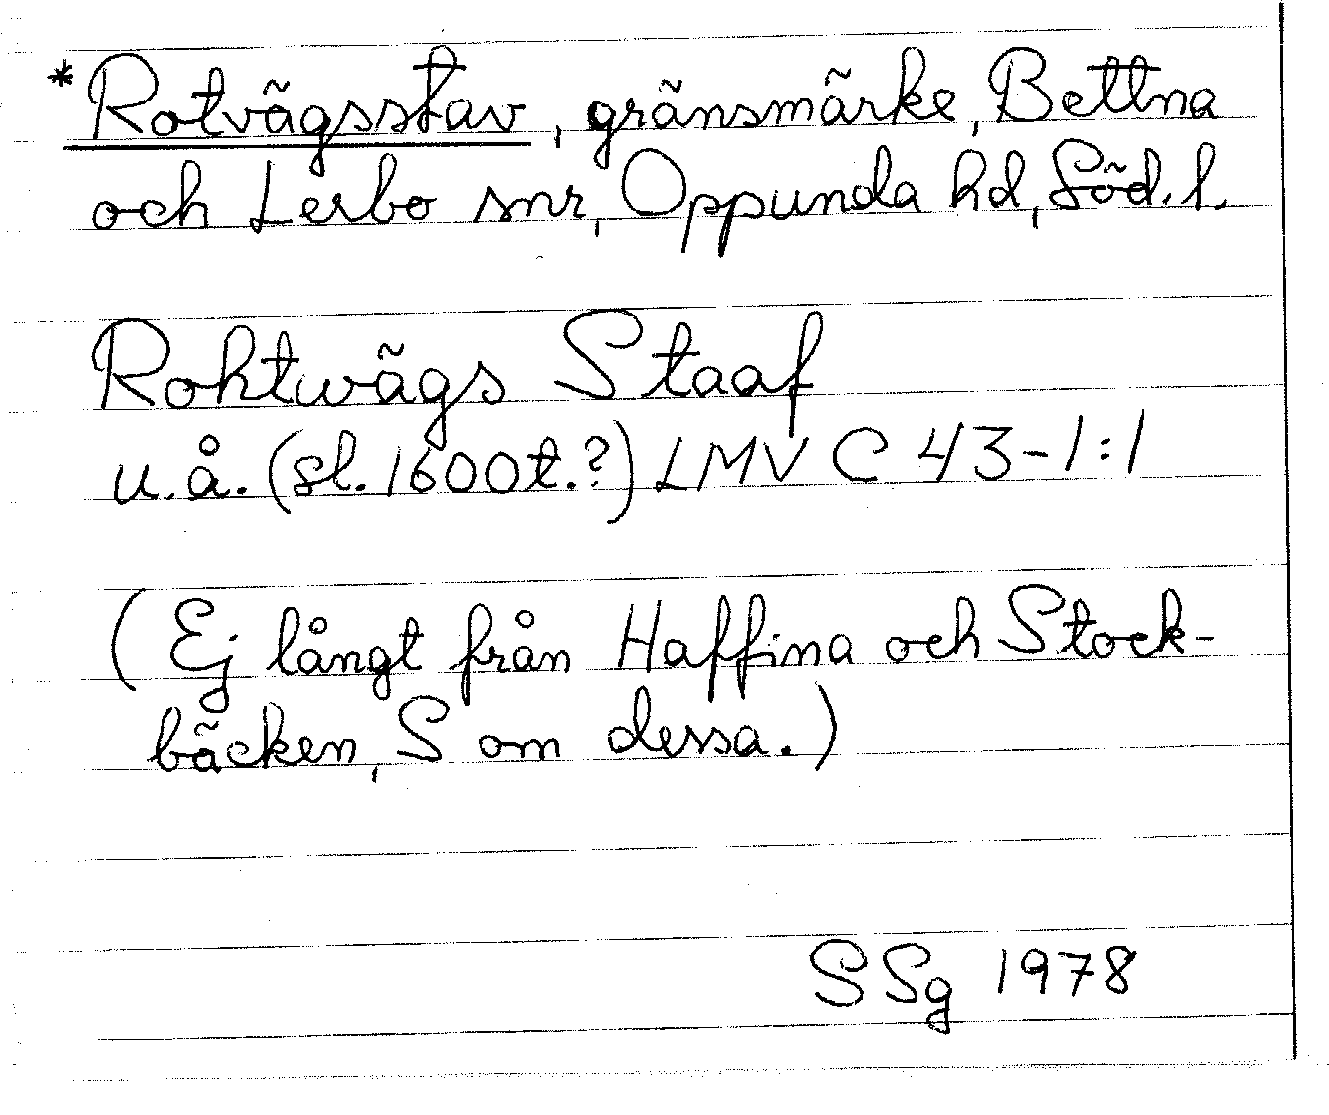 *Rotvägsstav, gränsmärke, Bettna
och Lerbo snr, Oppunda hd, Söd. l.
Rohtwägs Staaf
u.å. (sl. 1600t.?) LMV C 43-1:1
(Ej långt från Haffina och Stock-
bäcken, S om dessa.)
SSg 1978